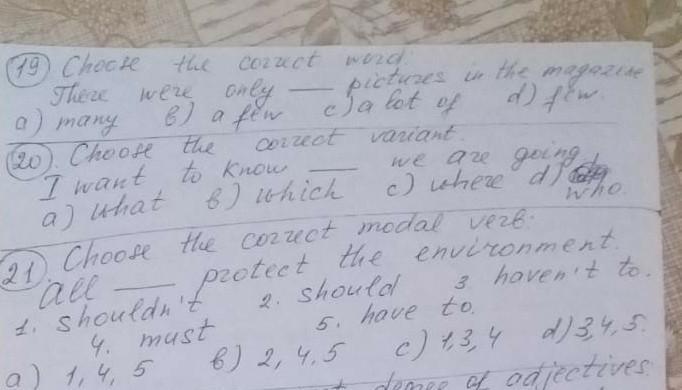 19 Choose the correct word.
There were only ___ pictures in the magazine
a) many b) a few c) a lot of d) few.
20. Choose the correct variant.
I want to know ___ we are going.
a) what b) which c) where d) who.
21 Choose the correct modal verb.
All ___ protect the environment.
1. shouldn't 2. should 3 haven't to.
4. must 5. have to.
a) 1, 4, 5 b) 2, 4, 5 c) 1, 3, 4 d) 3, 4, 5.
degree of adjectives